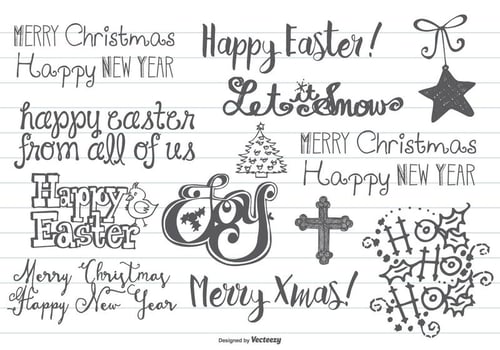 MERRY Christmas
Happy NEW YEAR
Happy Easter!
Let it Snow
happy easter
from all of us
MERRY Christmas
Happy NEW YEAR
Happy
Easter
Joy
HO
HO
HO
Merry Christmas
Happy New Year
Merry Xmas!
Designed by Vecteezy